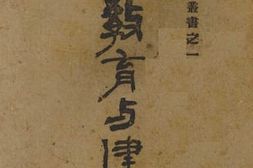 叢書之一
教育与